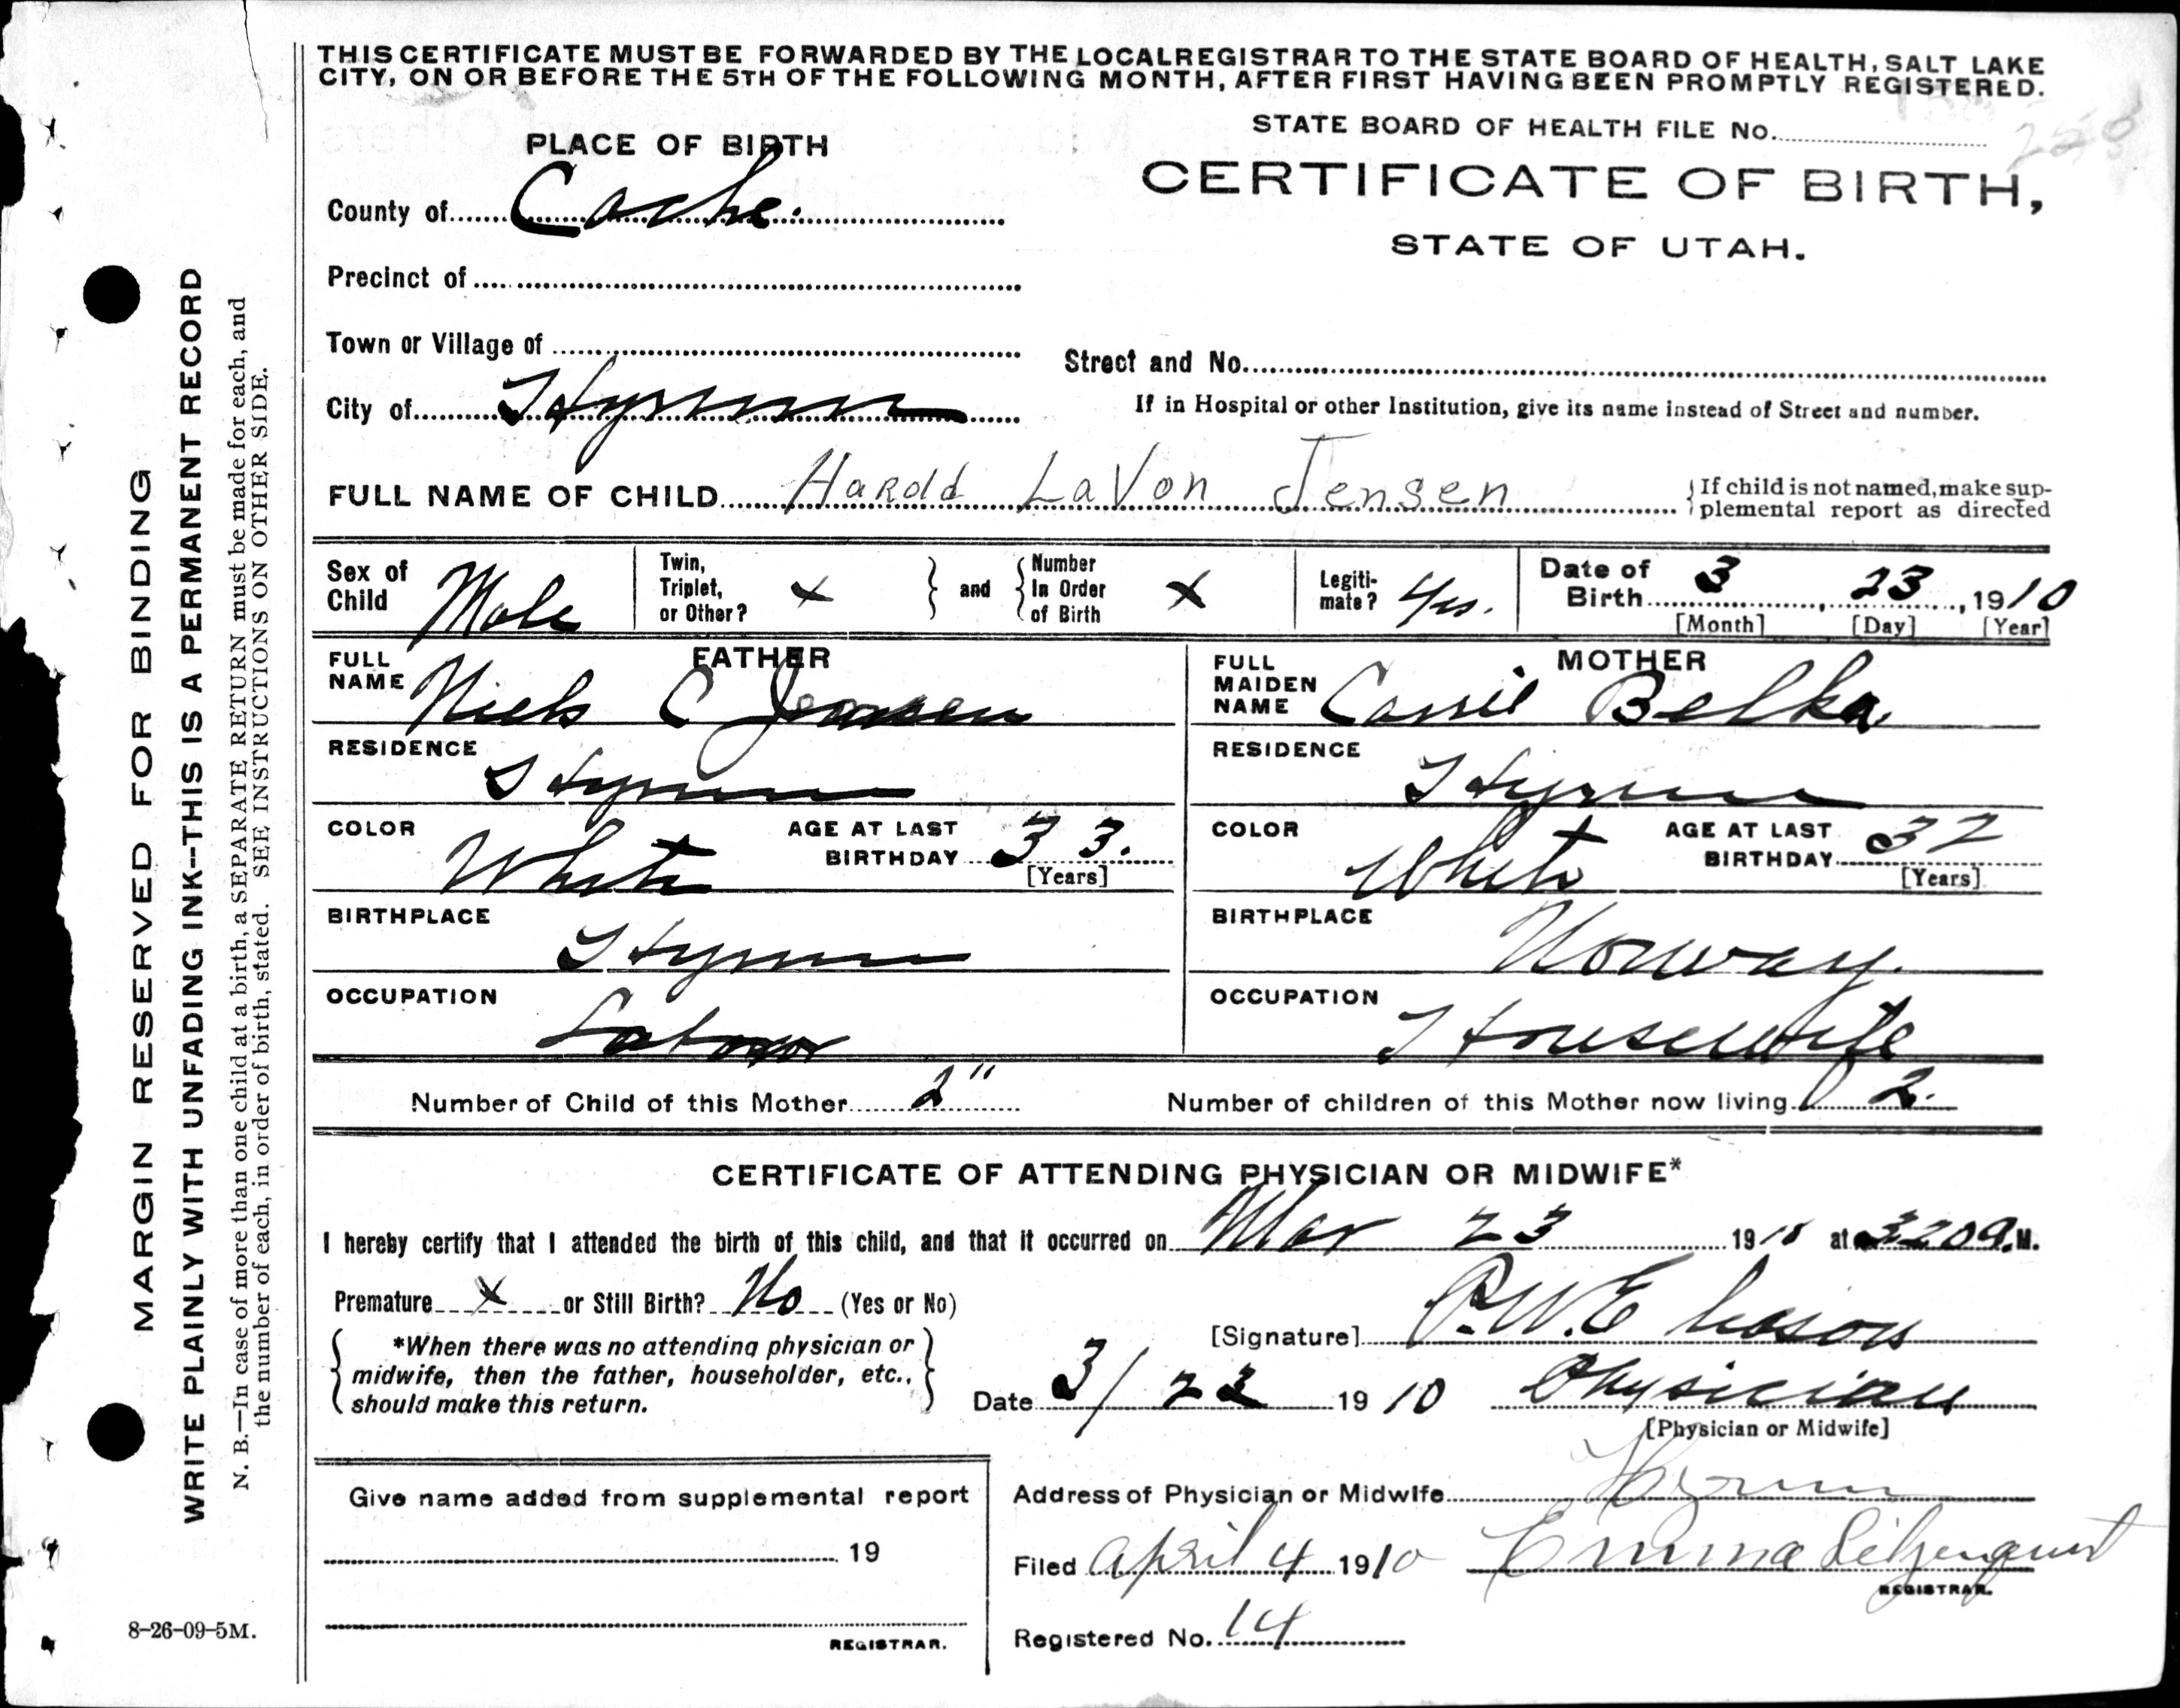 THIS CERTIFICATE MUST BE FORWARDED BY THE LOCAL REGISTRAR TO THE STATE BOARD OF HEALTH, SALT LAKE
CITY, ON OR BEFORE THE 5TH OF THE FOLLOWING MONTH, AFTER FIRST HAVING BEEN PROMPTLY REGISTERED.
STATE BOARD OF HEALTH FILE No. 258
PLACE OF BIRTH
CERTIFICATE OF BIRTH,
STATE OF UTAH.
County of Cache.
Precinct of
Town or Village of
Street and No.
City of Hyrum
If in Hospital or other Institution, give its name instead of Street and number.
FULL NAME OF CHILD Harold LaVon Jensen
If child is not named, make sup-
plemental report as directed
Sex of Child Male
Twin, Triplet, or Other? x
and
Number In Order of Birth x
Legiti-mate? Yes.
Date of Birth 3, 23, 1910
[Month] [Day] [Year]
FATHER
FULL NAME Niels C Jensen
MOTHER
FULL MAIDEN NAME Carrie Belka
RESIDENCE Hyrum
RESIDENCE Hyrum
COLOR White AGE AT LAST BIRTHDAY 33. [Years]
COLOR White AGE AT LAST BIRTHDAY 32 [Years]
BIRTHPLACE Hyrum
BIRTHPLACE Norway.
OCCUPATION Labor
OCCUPATION Housewife
Number of Child of this Mother 2"
Number of children of this Mother now living 2.
CERTIFICATE OF ATTENDING PHYSICIAN OR MIDWIFE*
I hereby certify that I attended the birth of this child, and that it occurred on Mar 23 1910 at 320 a.M.
Premature x or Still Birth? No (Yes or No)
*When there was no attending physician or
midwife, then the father, householder, etc.,
should make this return.
[Signature] P.W.E
Date 3/23 1910 Physician
[Physician or Midwife]
Give name added from supplemental report
19
REGISTRAR.
Address of Physician or Midwife Hyrum
Filed April 4 1910 Emma Liljenquist
REGISTRAR.
Registered No. 14
8-26-09-5M.
MARGIN RESERVED FOR BINDING
WRITE PLAINLY WITH UNFADING INK--THIS IS A PERMANENT RECORD
N. B.—In case of more than one child at a birth, a SEPARATE RETURN must be made for each, and
the number of each, in order of birth, stated. SEE INSTRUCTIONS ON OTHER SIDE.